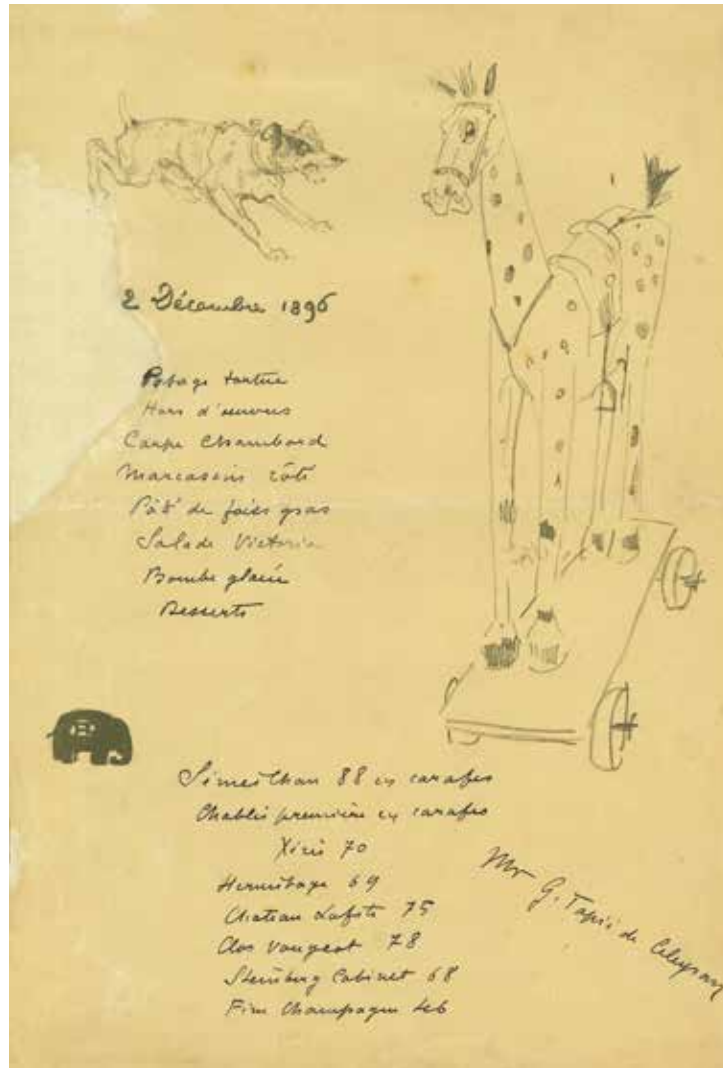 2 Décembre 1896
Potage tortue
Hors d'œuvres
Carpe Chambord
Marcassin rôti
Pâté de foies gras
Salade Victoria
Bombe glacée
Desserts
88 en carafes
Chablis première en carafes
Xérès 70
Hermitage 69
Chateau Lafite 75
Clos Vougeot 78
Steinberg Cabinet 68
Fine Champagne
Mr G. Tapié de Céleyran